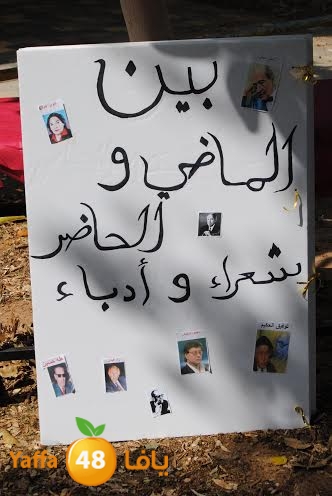 بين
الماضي و
الحاضر
شعراء و أدباء
توفيق الحكيم
طه حسين
Yaffa 48 يافا